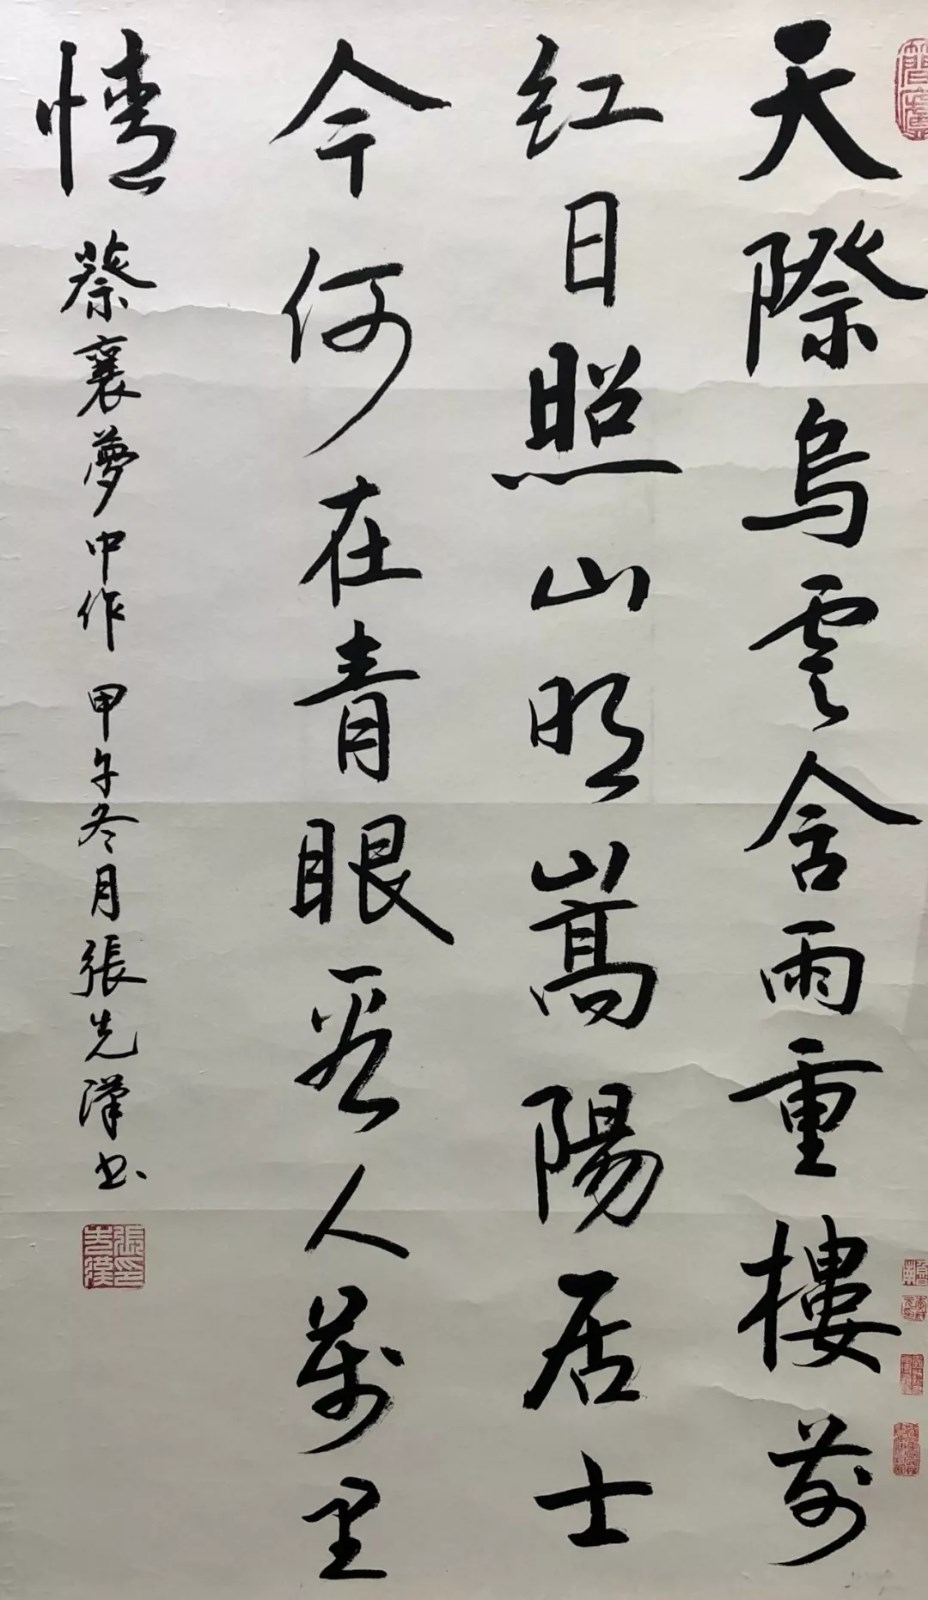 天際烏雲含雨重樓前
红日照山明嵩陽居士
今何在青眼看人萬里
情
蔡襄夢中作 甲午冬月張先漢书
張先漢印